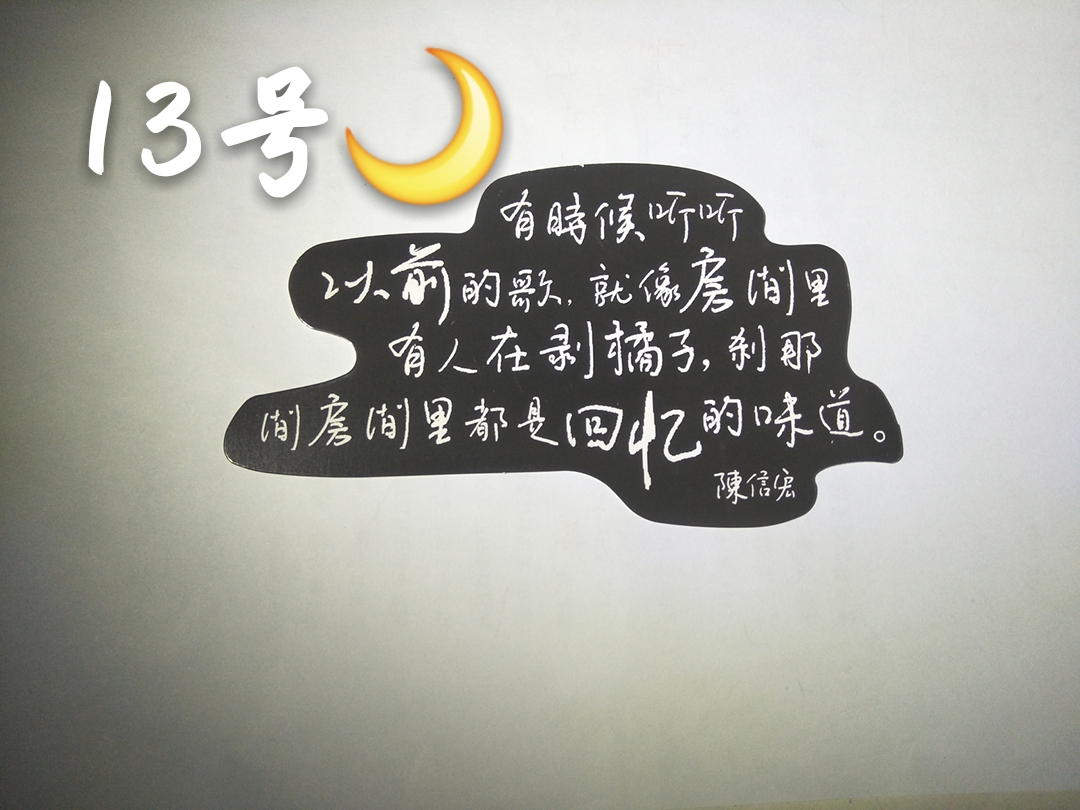 13号
有時候听听
以前的歌，就像房间里
有人在剥橘子，刹那
间房间里都是回忆的味道。
陳信宏